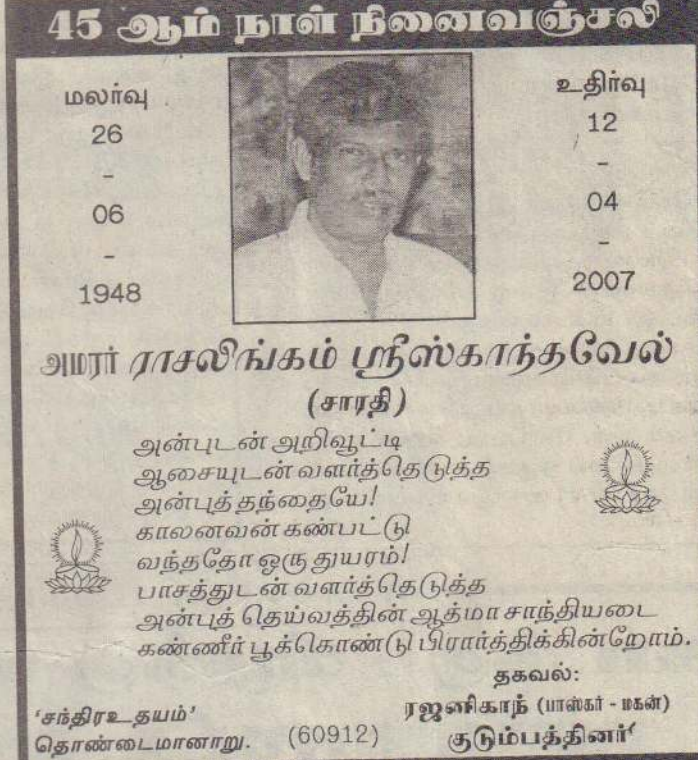 45 ஆம் நாள் நினைவஞ்சலி
மலர்வு
26
-
06
-
1948
உதிர்வு
12
-
04
-
2007
அமரர் ராசலிங்கம் ஸ்ரீஸ்காந்தவேல்
(சாரதி)
அன்புடன் அறிவூட்டி
ஆசையுடன் வளர்த்தெடுத்த
அன்புத் தந்தையே!
காலனவன் கண்பட்டு
வந்ததோ ஒரு துயரம்!
பாசத்துடன் வளர்த்தெடுத்த
அன்புத் தெய்வத்தின் ஆத்மா சாந்தியடை
கண்ணீர் பூக்கொண்டு பிரார்த்திக்கின்றோம்.
தகவல்:
ரஜனிகாந் (பாஸ்கர் - மகன்)
குடும்பத்தினர்
‘சந்திரஉதயம்’
தொண்டைமானாறு.
(60912)